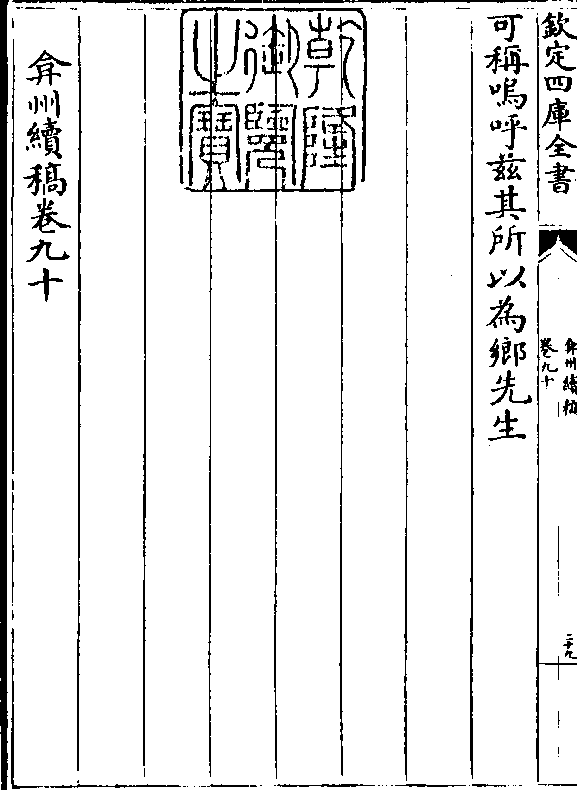 欽定四庫全書
弇州續稿
卷九十
二十九
可稱嗚呼茲其所以為鄉先生
乾隆
御覽
之寶
弇州續稿卷九十